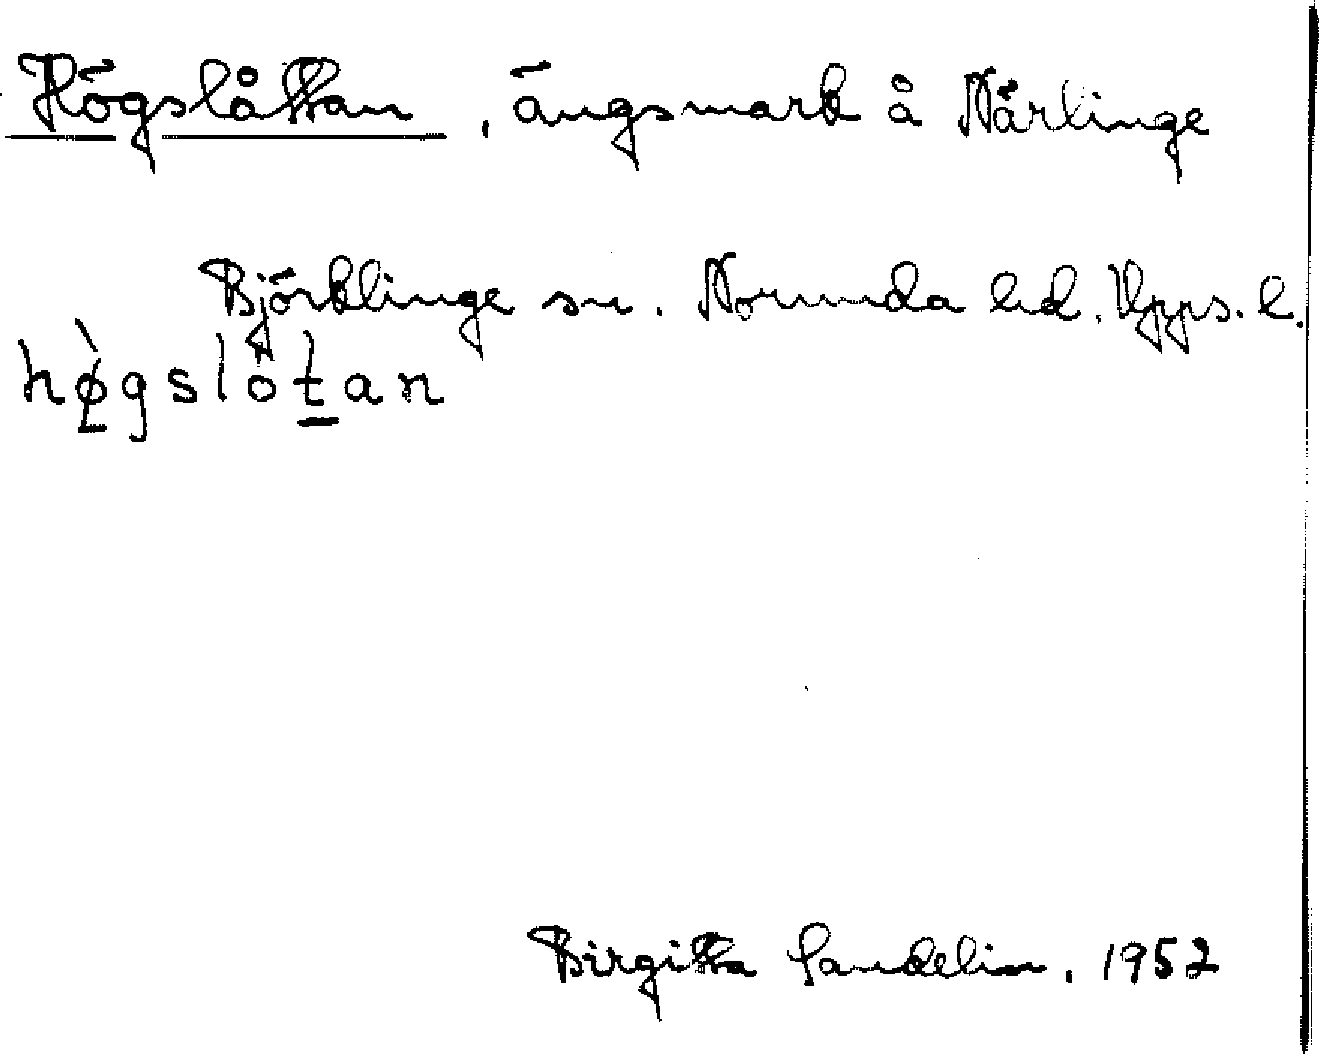 Högslåttan, ängsmark å Nårlinge
Björklinge sn. Norunda hd. Upps. l.
hø̀gslòt̠an
Birgitta Sandelin. 1952